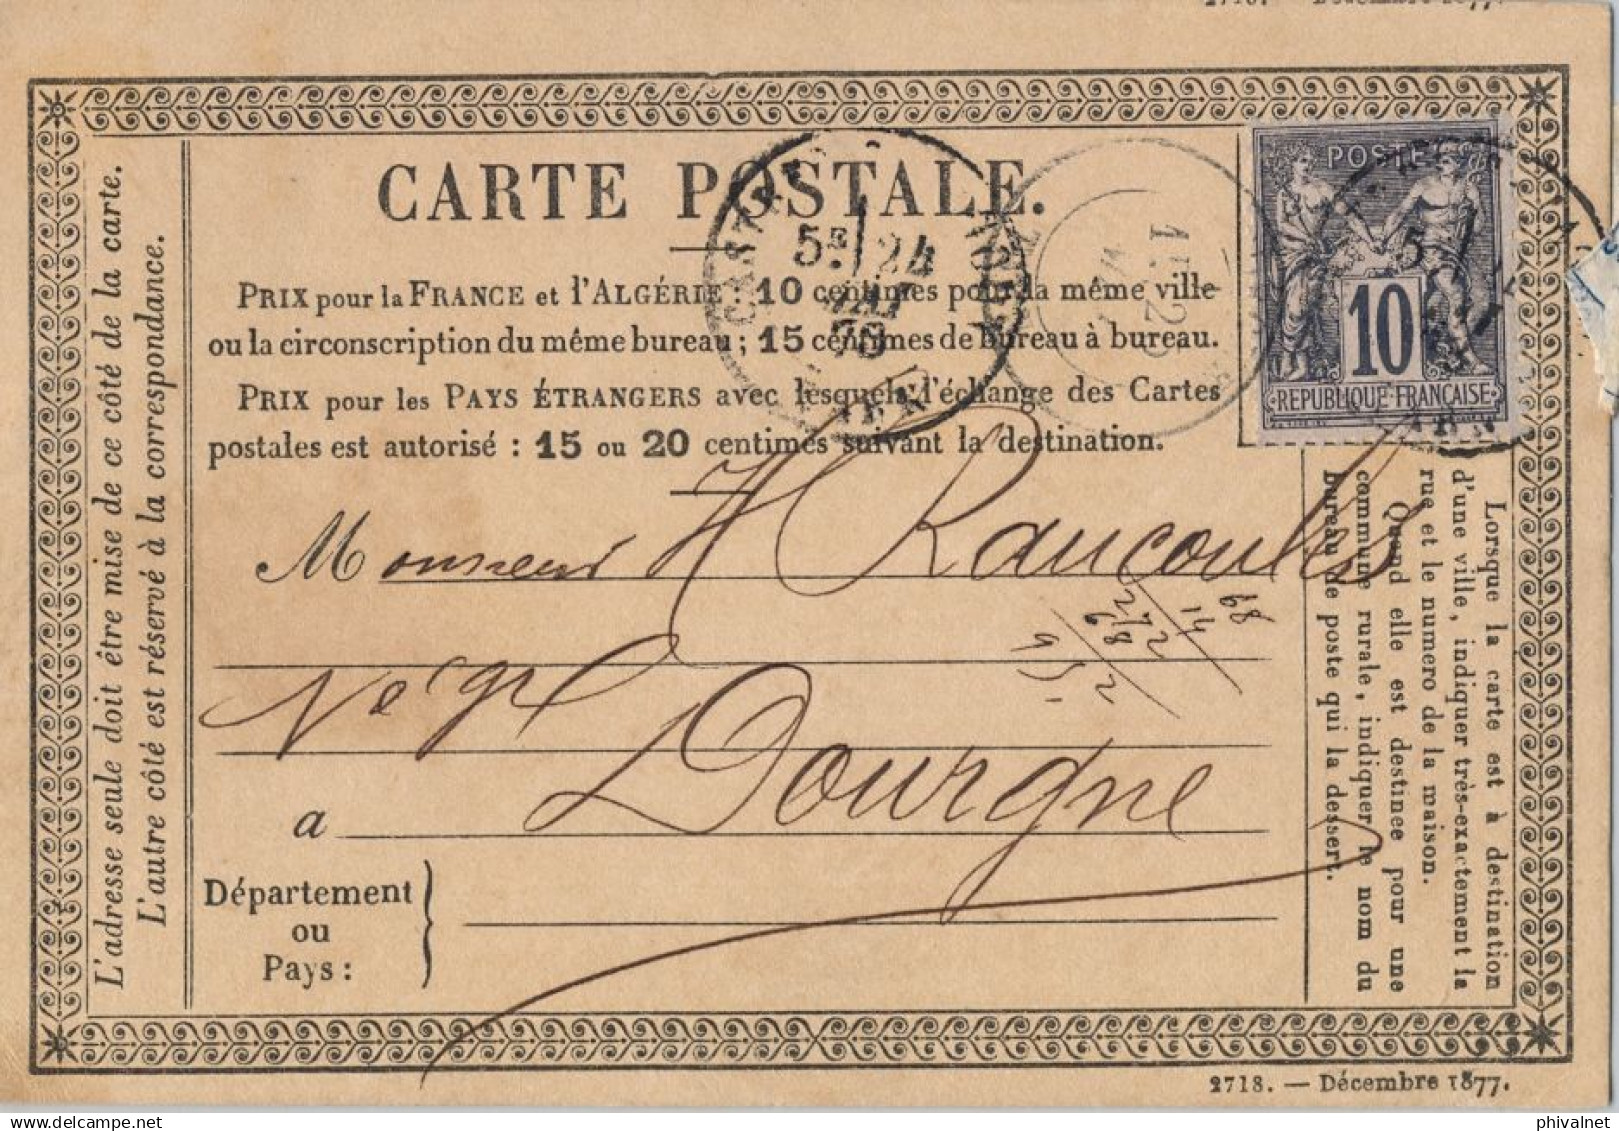 CARTE POSTALE.
PRIX pour la FRANCE et l'ALGÉRIE : 10 centimes pour la même ville
ou la circonscription du même bureau ; 15 centimes de bureau à bureau.
PRIX pour les PAYS ÉTRANGERS avec lesquels l'échange des Cartes
postales est autorisé : 15 ou 20 centimes suivant la destination.
L'adresse seule doit être mise de ce côté de la carte.
L'autre côté est réservé à la correspondance.
POSTE
10
REPUBLIQUE FRANÇAISE
CASTRES
5E 24
MAI
78
TARN
Monsieur H Raucoules
Né gt
a Dourgne
Département
ou
Pays :
Lorsque la carte est à destination
d'une ville, indiquer très-exactement la
rue et le numero de la maison.
Quand elle est destinée pour une
commune rurale, indiquer le nom du
bureau de poste qui la dessert.
2718. — Décembre 1877.
delcampe.net
phivalnet